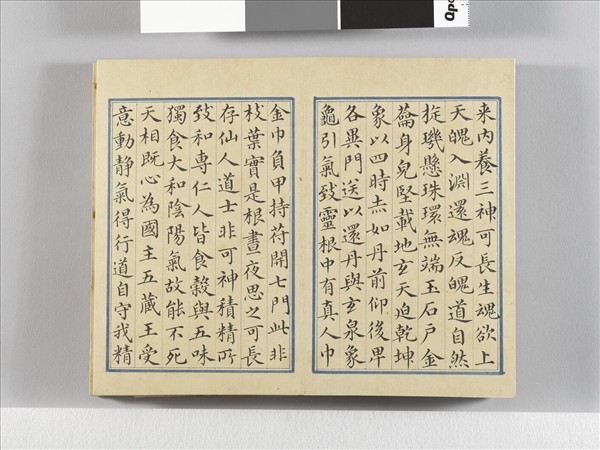 来内養三神可長生魂欲上
天魄入淵還魂反魄道自然
旋璣懸珠環無端玉石戸金
籥身皃堅載地玄天迫乾坤
象以四時赤如丹前仰後卑
各異門送以還丹與玄泉象
龜引氣致靈根中有真人巾
金巾負甲持苻開七門此非
枝葉實是根晝夜思之可長
存仙人道士非可神積精所
致和專仁人皆食穀與五味
獨食大和陰陽氣故能不死
天相既心為國主五蔵王受
意動静氣得行道自守我精